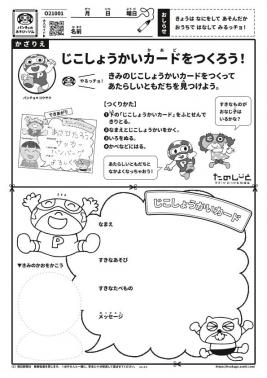 021001
月 日 曜日
名前
おしらせ
きょうは なにをして あそんだか
おうちで はなして みるッチョ！
かざりえ
じこしょうかいカードをつくろう！
やるッチョ！
きみのじこしょうかいカードをつくって
あたらしいともだちを見つけよう。
【つくりかた】
❶下の「じこしょうかいカード」をふとせんで
きりとる。
❷なまえとじこしょうかいをかく。
❸いろをぬる。
❹かべなどにはる。
すきなものが
おなじ子は
いるかな？
あたらしいともだちと
なかよくなっちゃおう！
たのしいと
じこしょうかいカード
なまえ
▼きみのかおをかこう
すきなあそび
すきなたべもの
メッセージ